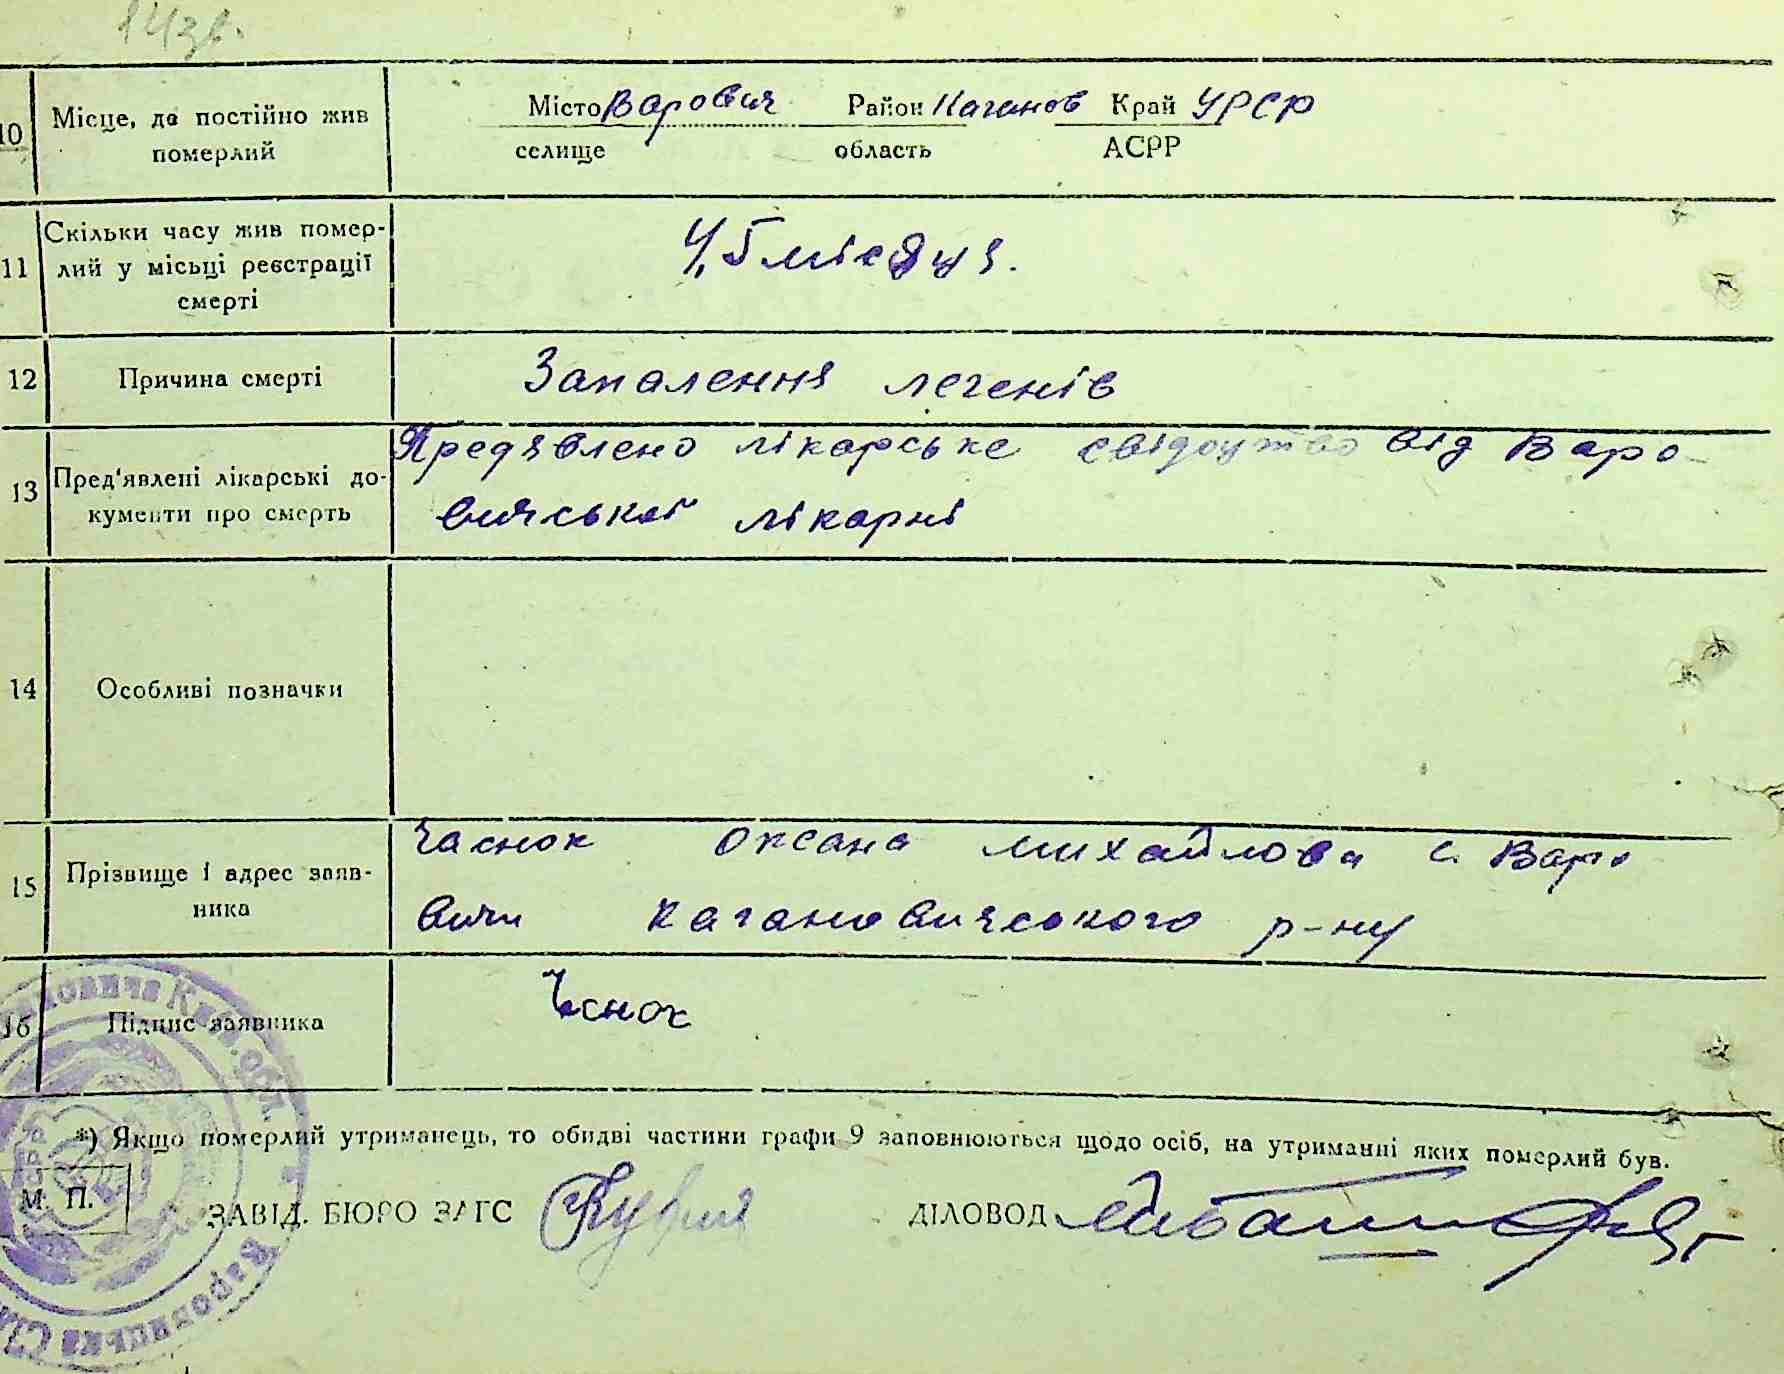 14зв.
10 Місце, де постійно жив померлий
Місто Варовичі Район Каганов Край УРСР
селище область АСРР
11 Скільки часу жив помер-
лий у місьці реєстрації
смерті
4,5 місяця.
12 Причина смерті Запалення легенів
13 Пред'явлені лікарські до-
кументи про смерть
Предявлено лікарське свідоцтво від Варо-
вичської лікарні
14 Особливі позначки
15 Прізвище і адрес заяв-
ника
Часнок Оксана Михайлова с. Варо
вичи Кагановичського р-ну
16 Підпис заявника Чснок
*) Якщо померлий утриманець, то обидві частини графи 9 заповнюються щодо осіб, на утриманні яких померлий був.
М. П. ЗАВІД. БЮРО ЗАГС ДІЛОВОД
Київ. обл.